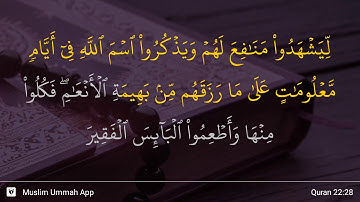 لِّيَشْهَدُوا۟ مَنَـٰفِعَ لَهُمْ وَيَذْكُرُوا۟ ٱسْمَ ٱللَّهِ فِىٓ أَيَّامٍ
مَّعْلُومَـٰتٍ عَلَىٰ مَا رَزَقَهُم مِّنۢ بَهِيمَةِ ٱلْأَنْعَـٰمِ ۖ فَكُلُوا۟
مِنْهَا وَأَطْعِمُوا۟ ٱلْبَآئِسَ ٱلْفَقِيرَ
Muslim Ummah App
Quran 22:28